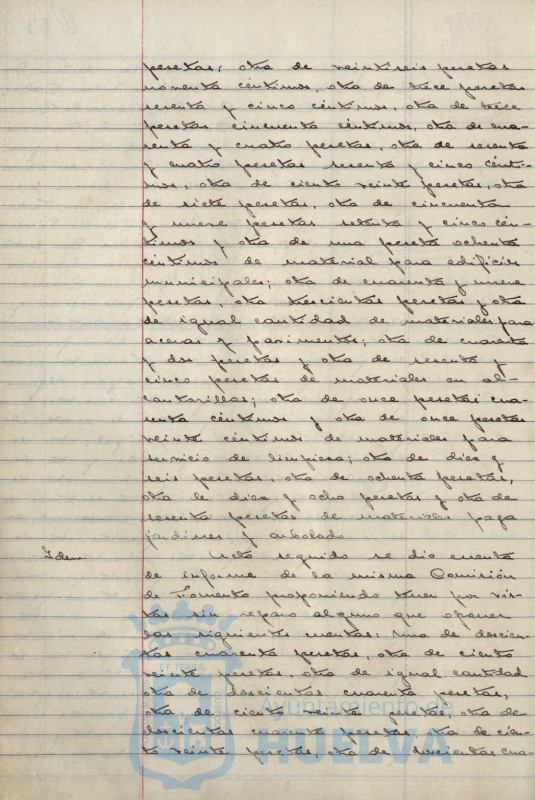 pesetas; otra de veintiseis pesetas
noventa céntimos, otra de trece pesetas
sesenta y cinco céntimos, otra de trece
pesetas cincuenta céntimos, otra de cua-
renta y cuatro pesetas, otra de sesenta
y cuatro pesetas sesenta y cinco cénti-
mos, otra de ciento veinte pesetas, otra
de siete pesetas, otra de cincuenta
y nueve pesetas setenta y cinco cén-
timos y otra de una peseta ochenta
céntimos de material para edificios
municipales; otra de cuarenta y nueve
pesetas, otra trescientas pesetas y otra
de igual cantidad de materiales para
aceras y pavimentos; otra de cuarenta
y dos pesetas y otra de sesenta y
cinco pesetas de materiales en al-
cantarillas; otra de once pesetas cua-
renta céntimos y otra de once pesetas
veinte céntimos de materiales para
servicio de limpieza; otra de diez y
seis pesetas, otra de ochenta pesetas,
otra de diez y ocho pesetas y otra de
sesenta pesetas de materiales para
jardines y arbolado.
Idem. Acto seguido se dio cuenta
de informe de la misma Comisión
de Fomento proponiendo tener por vis-
tas sin reparo alguno que oponer
las siguientes cuentas: una de doscien-
tas cuarenta pesetas, otra de ciento
veinte pesetas, otra de igual cantidad
otra de doscientas cuarenta pesetas,
otra de ciento veinte pesetas, otra de
doscientas cuarenta pesetas, otra de cien-
to veinte pesetas, otra de doscientas cua-
ET TERRÆ
Ayuntamiento de
HUELVA